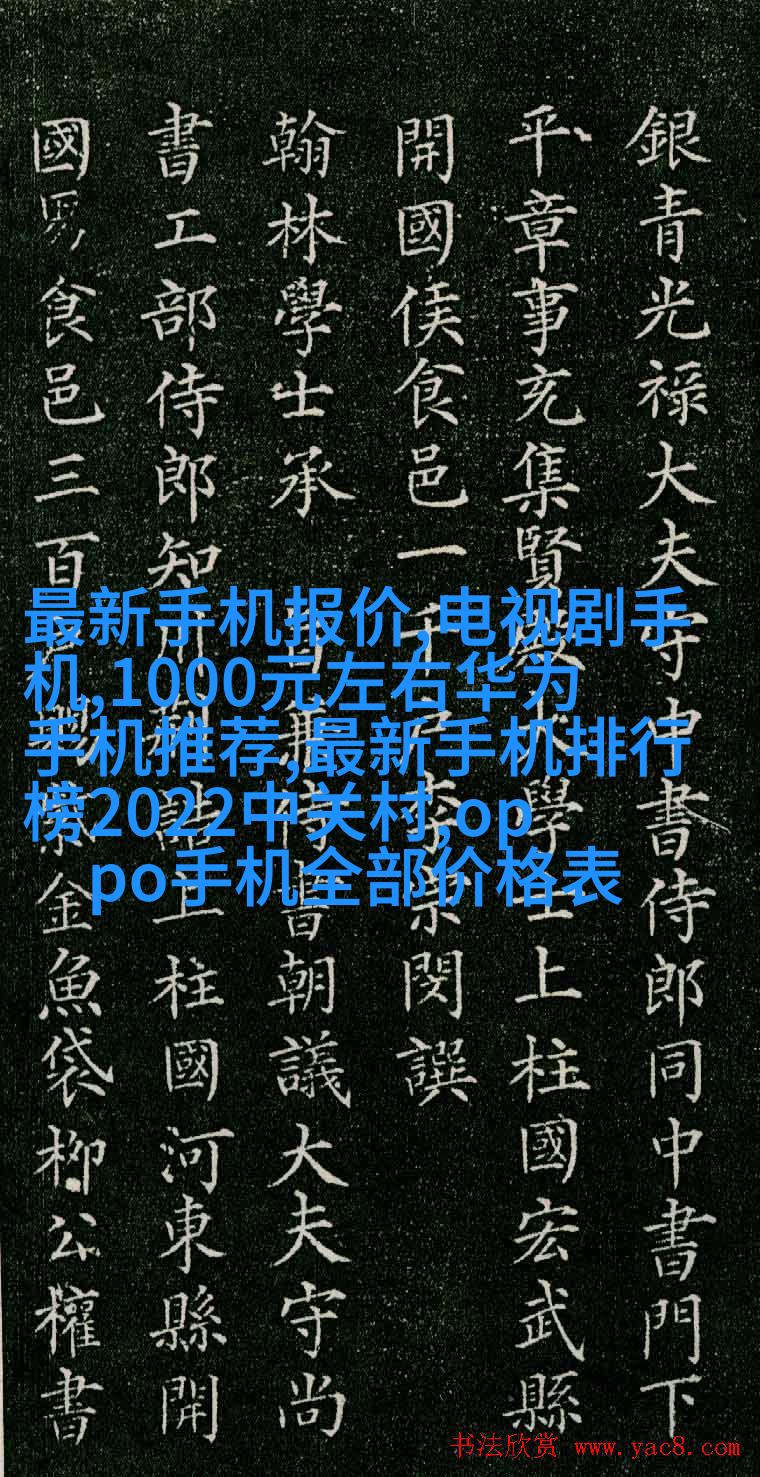 銀青光禄大夫守中書侍郎同中書門下
平章事充集賢殿大學士上柱國宏武縣
開國侯食邑一千户李宗閔譔
翰林學士承旨兼侍書朝議大夫守尚
書工部侍郎知制誥上柱國河東縣開
國男食邑三百户賜紫金魚袋柳公權書
最新手机报价,电视剧手
机,1000元左右华为
手机推荐,最新手机排行
榜2022中关村,op
po手机全部价格表
书法欣赏 www.yac8.com